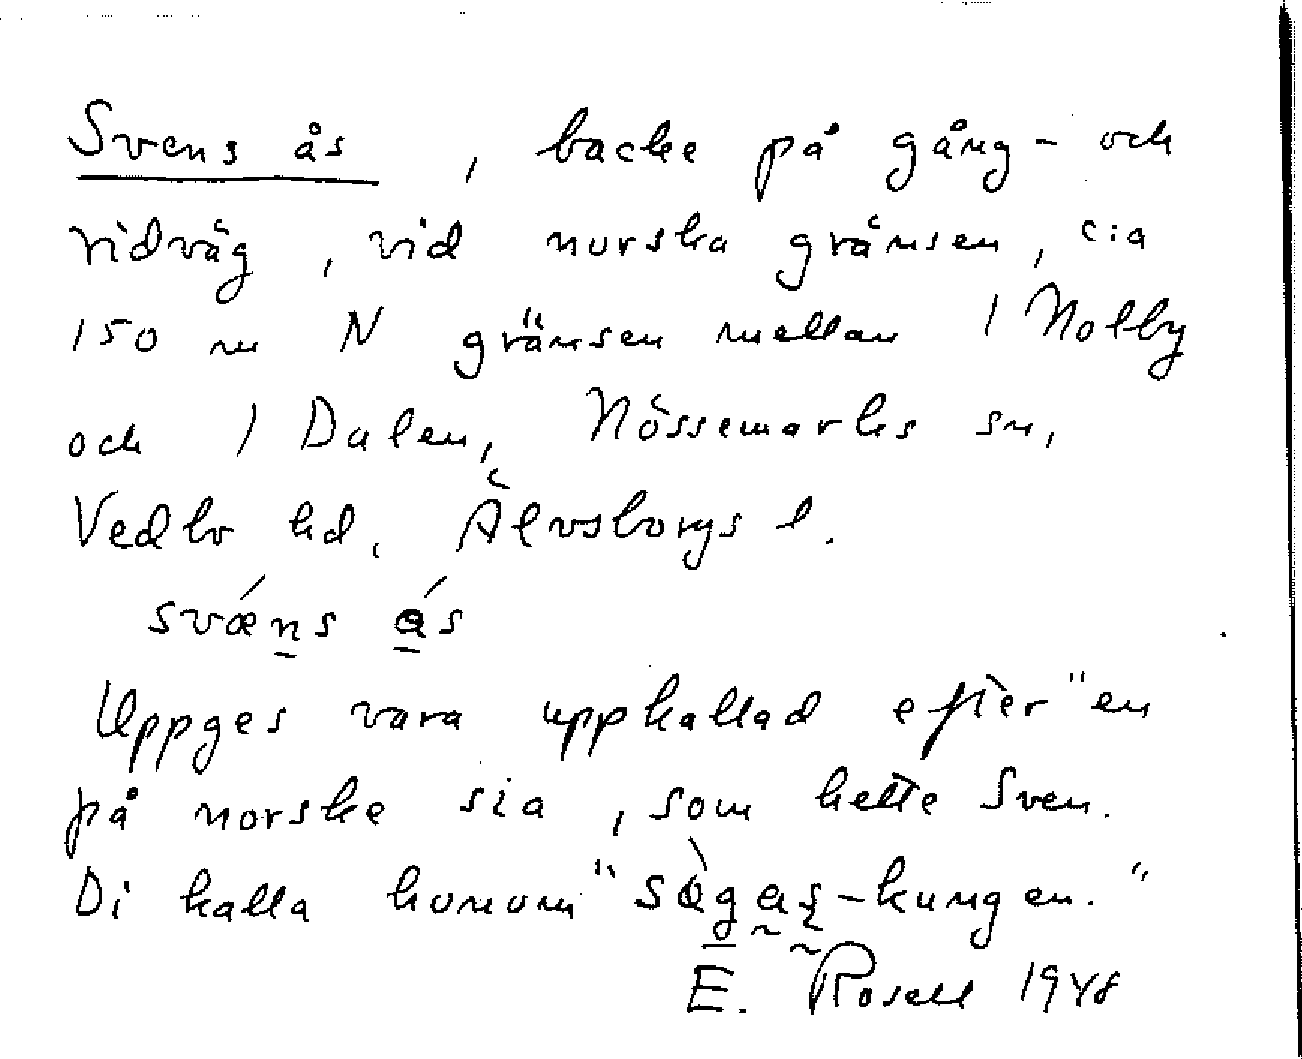 Svens ås, backe på gång- och
ridväg, vid norska gränsen, c:a
150 m N gränsen mellan 1 Nolby
och 1 Dalen, Nössemarks sn,
Vedbo hd, Älvsborgs l.
svǽns ás
Uppges vara uppkallad efter "en
på norske sia, som hette Sven.
Di kalla honom "-kungen."
E. Rosell 1948